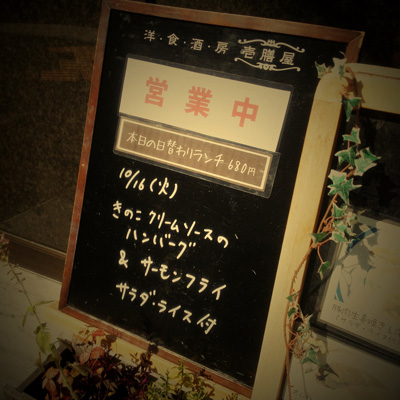 洋・食・酒・房 壱膳屋
営業中
本日の日替わりランチ 680円
10/16(火)
きのこクリームソースの
ハンバーグ
& サーモンフライ
サラダ・ライス付